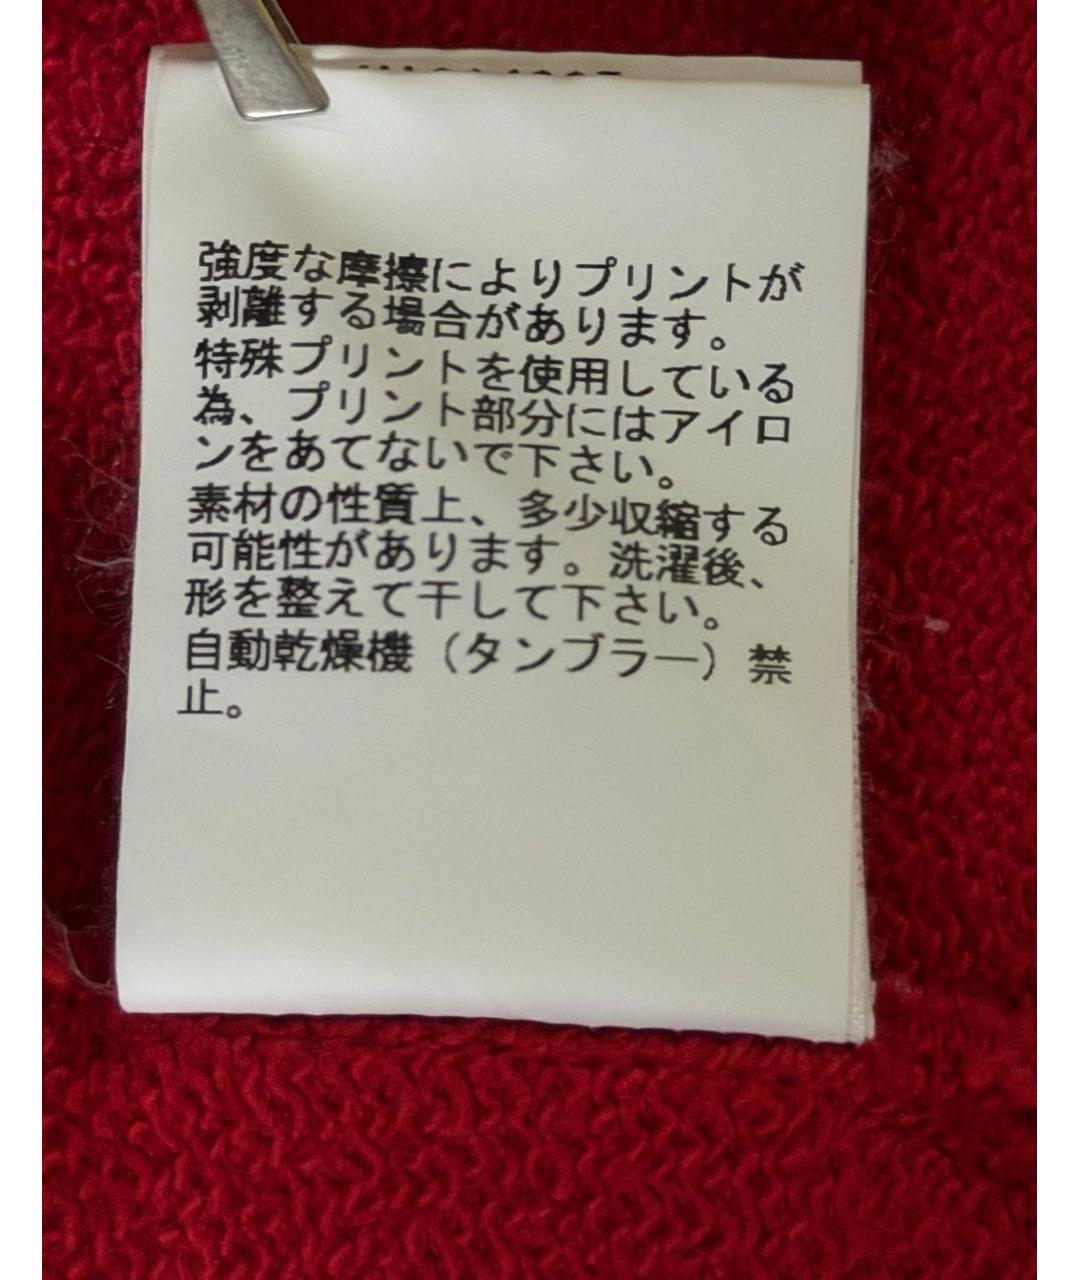 強度な摩擦によりプリントが
剥離する場合があります。
特殊プリントを使用している
為、プリント部分にはアイロ
ンをあてないで下さい。
素材の性質上、多少収縮する
可能性があります。洗濯後、
形を整えて干して下さい。
自動乾燥機（タンブラー）禁
止。